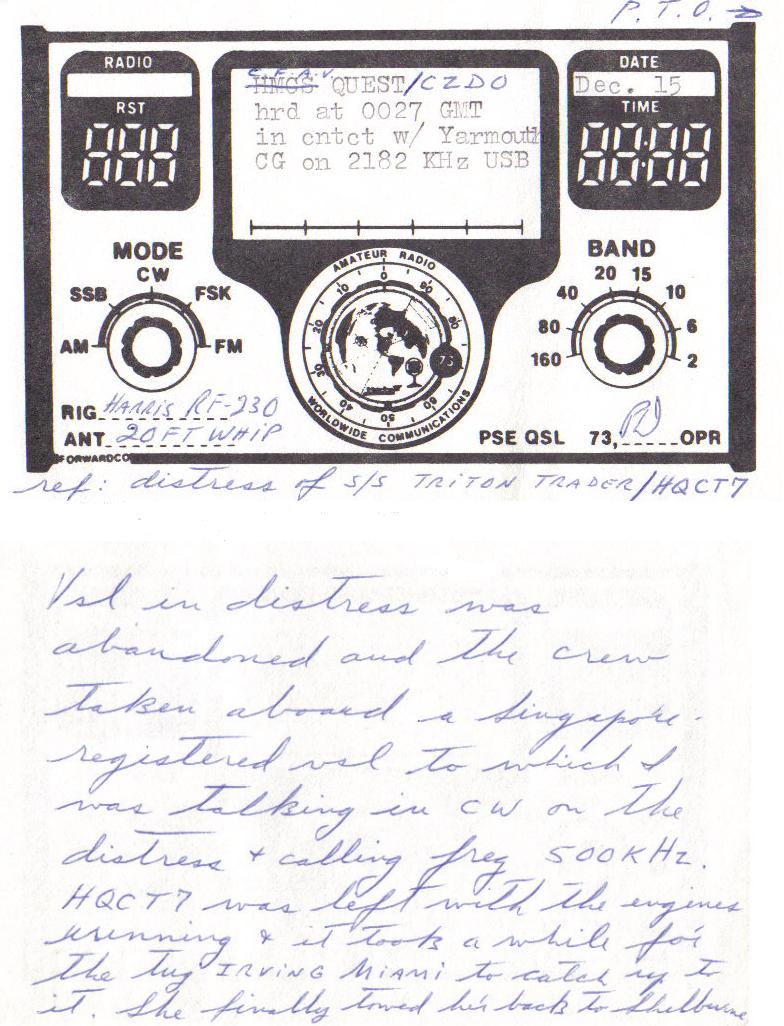 P.T.O. →
RADIO
RST
888
C.F.A.V.
HMCS QUEST/CZDO
hrd at 0027 GMT
in cntct w/ Yarmouth
CG on 2182 KHz USB
DATE
Dec. 15
TIME
88:88
MODE
CW
SSB
FSK
AM
FM
AMATEUR RADIO
0
10
20
30
40
50
60
80
90
73
WORLDWIDE COMMUNICATIONS
BAND
20 15
40 10
80 6
160 2
RIG HARRIS RF-230
ANT 20 FT WHIP
PSE QSL 73, RD OPR
FORWARDCO
ref: distress of S/S TRITON TRADER/HQCT7
Vsl in distress was
abandoned and the crew
taken aboard a Singapore-
registered vsl to which I
was talking in CW on the
distress + calling freq 500KHz.
HQCT7 was left with the engines
running & it took a while for
the tug IRVING MIAMI to catch up to
it. She finally towed her back to Shelburne